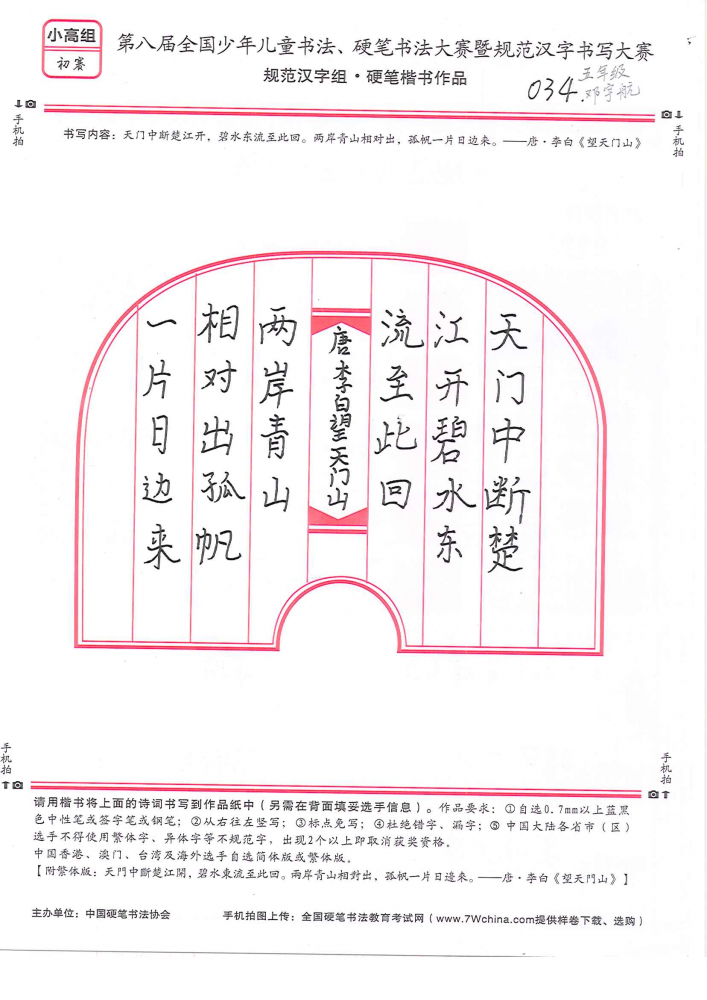 小高组
初赛
第八届全国少年儿童书法、硬笔书法大赛暨规范汉字书写大赛
规范汉字组·硬笔楷书作品
034
五年级
邓宇航
手机拍
手机拍
书写内容：天门中断楚江开，碧水东流至此回。两岸青山相对出，孤帆一片日边来。——唐·李白《望天门山》
天门中断楚
江开碧水东
流至此回
唐李白望天门山
两岸青山
相对出孤帆
一片日边来
手机拍
手机拍
请用楷书将上面的诗词书写到作品纸中（另需在背面填妥选手信息）。作品要求：①自选0.7mm以上蓝黑
色中性笔或签字笔或钢笔；②从右往左竖写；③标点免写；④杜绝错字、漏字；⑤中国大陆各省市（区）
选手不得使用繁体字、异体字等不规范字，出现2个以上即取消获奖资格。
中国香港、澳门、台湾及海外选手自选简体版或繁体版。
【附繁体版：天門中斷楚江開，碧水東流至此回。兩岸青山相對出，孤帆一片日邊來。——唐·李白《望天門山》】
主办单位：中国硬笔书法协会
手机拍图上传：全国硬笔书法教育考试网（www.7Wchina.com提供样卷下载、选购）